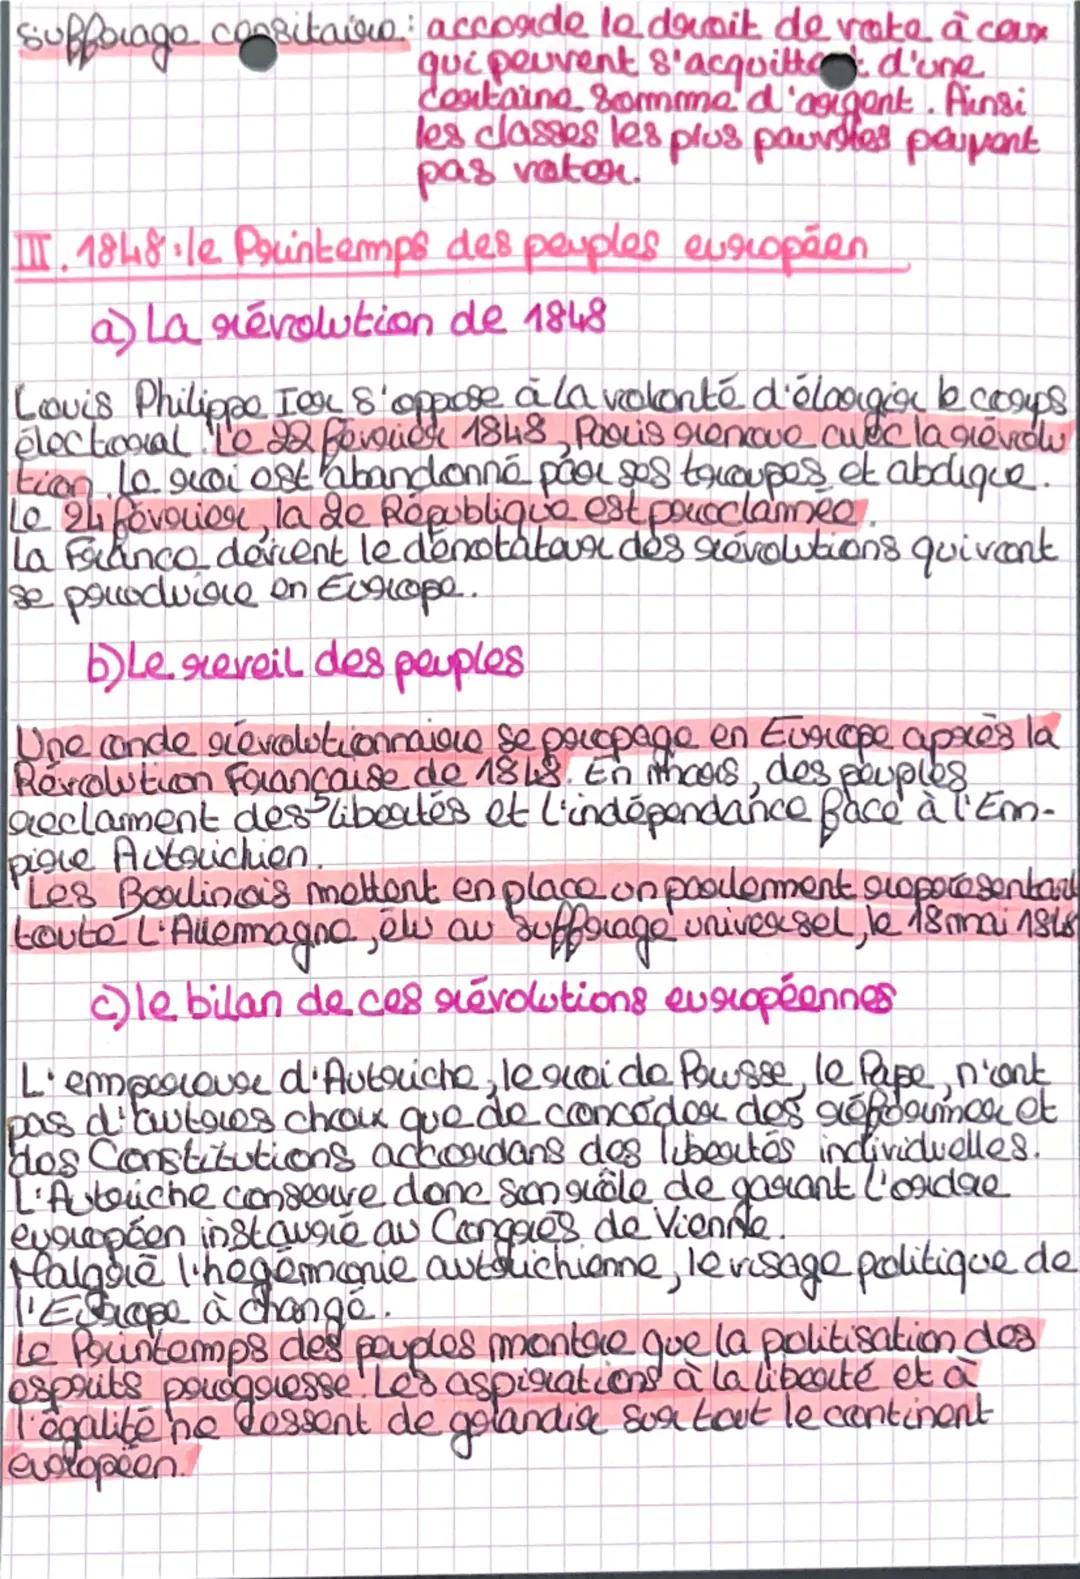 suffrage censitaire : accorde le droit de vote à ceux
qui peuvent s'acquitter d'une
certaine somme d'argent. Ainsi
les classes les plus pauvres peuvent
pas voter.
III. 1848 : le Printemps des peuples européen
a) La révolution de 1848
Louis Philippe Ier s'oppose à la volonté d'élargir le corps
électoral. Le 22 février 1848, Paris renoue avec la révolu
tion. Le roi est abandonné par ses troupes et abdique.
Le 24 février, la 2e République est proclamée.
La France devient le dénotateur des révolutions qui vont
se produire en Europe.
b) Le reveil des peuples
Une onde révolutionnaire se propage en Europe après la
Révolution Française de 1848. En mars, des peuples
reclament des libertés et l'indépendance face à l'Em-
pire Autrichien.
Les Berlinois mettent en place un parlement représentant
toute l'Allemagne, élu au suffrage universel, le 18 mai 1848
c) le bilan de ces révolutions européennes
L'empereur d'Autriche, le roi de Prusse, le Pape, n'ont
pas d'autres choix que de concéder des réformer et
des Constitutions accordans des libertés individuelles.
L'Autriche conserve donc son rôle de garant l'ordre
européen instauré au Congrès de Vienne.
Malgré l'hegémonie autrichienne, le visage politique de
l'Europe à changé.
Le Printemps des peuples montre que la politisation des
esprits progresse. Les aspirations à la liberté et à
l'égalité ne cessent de grandir sur tout le continent
européen.